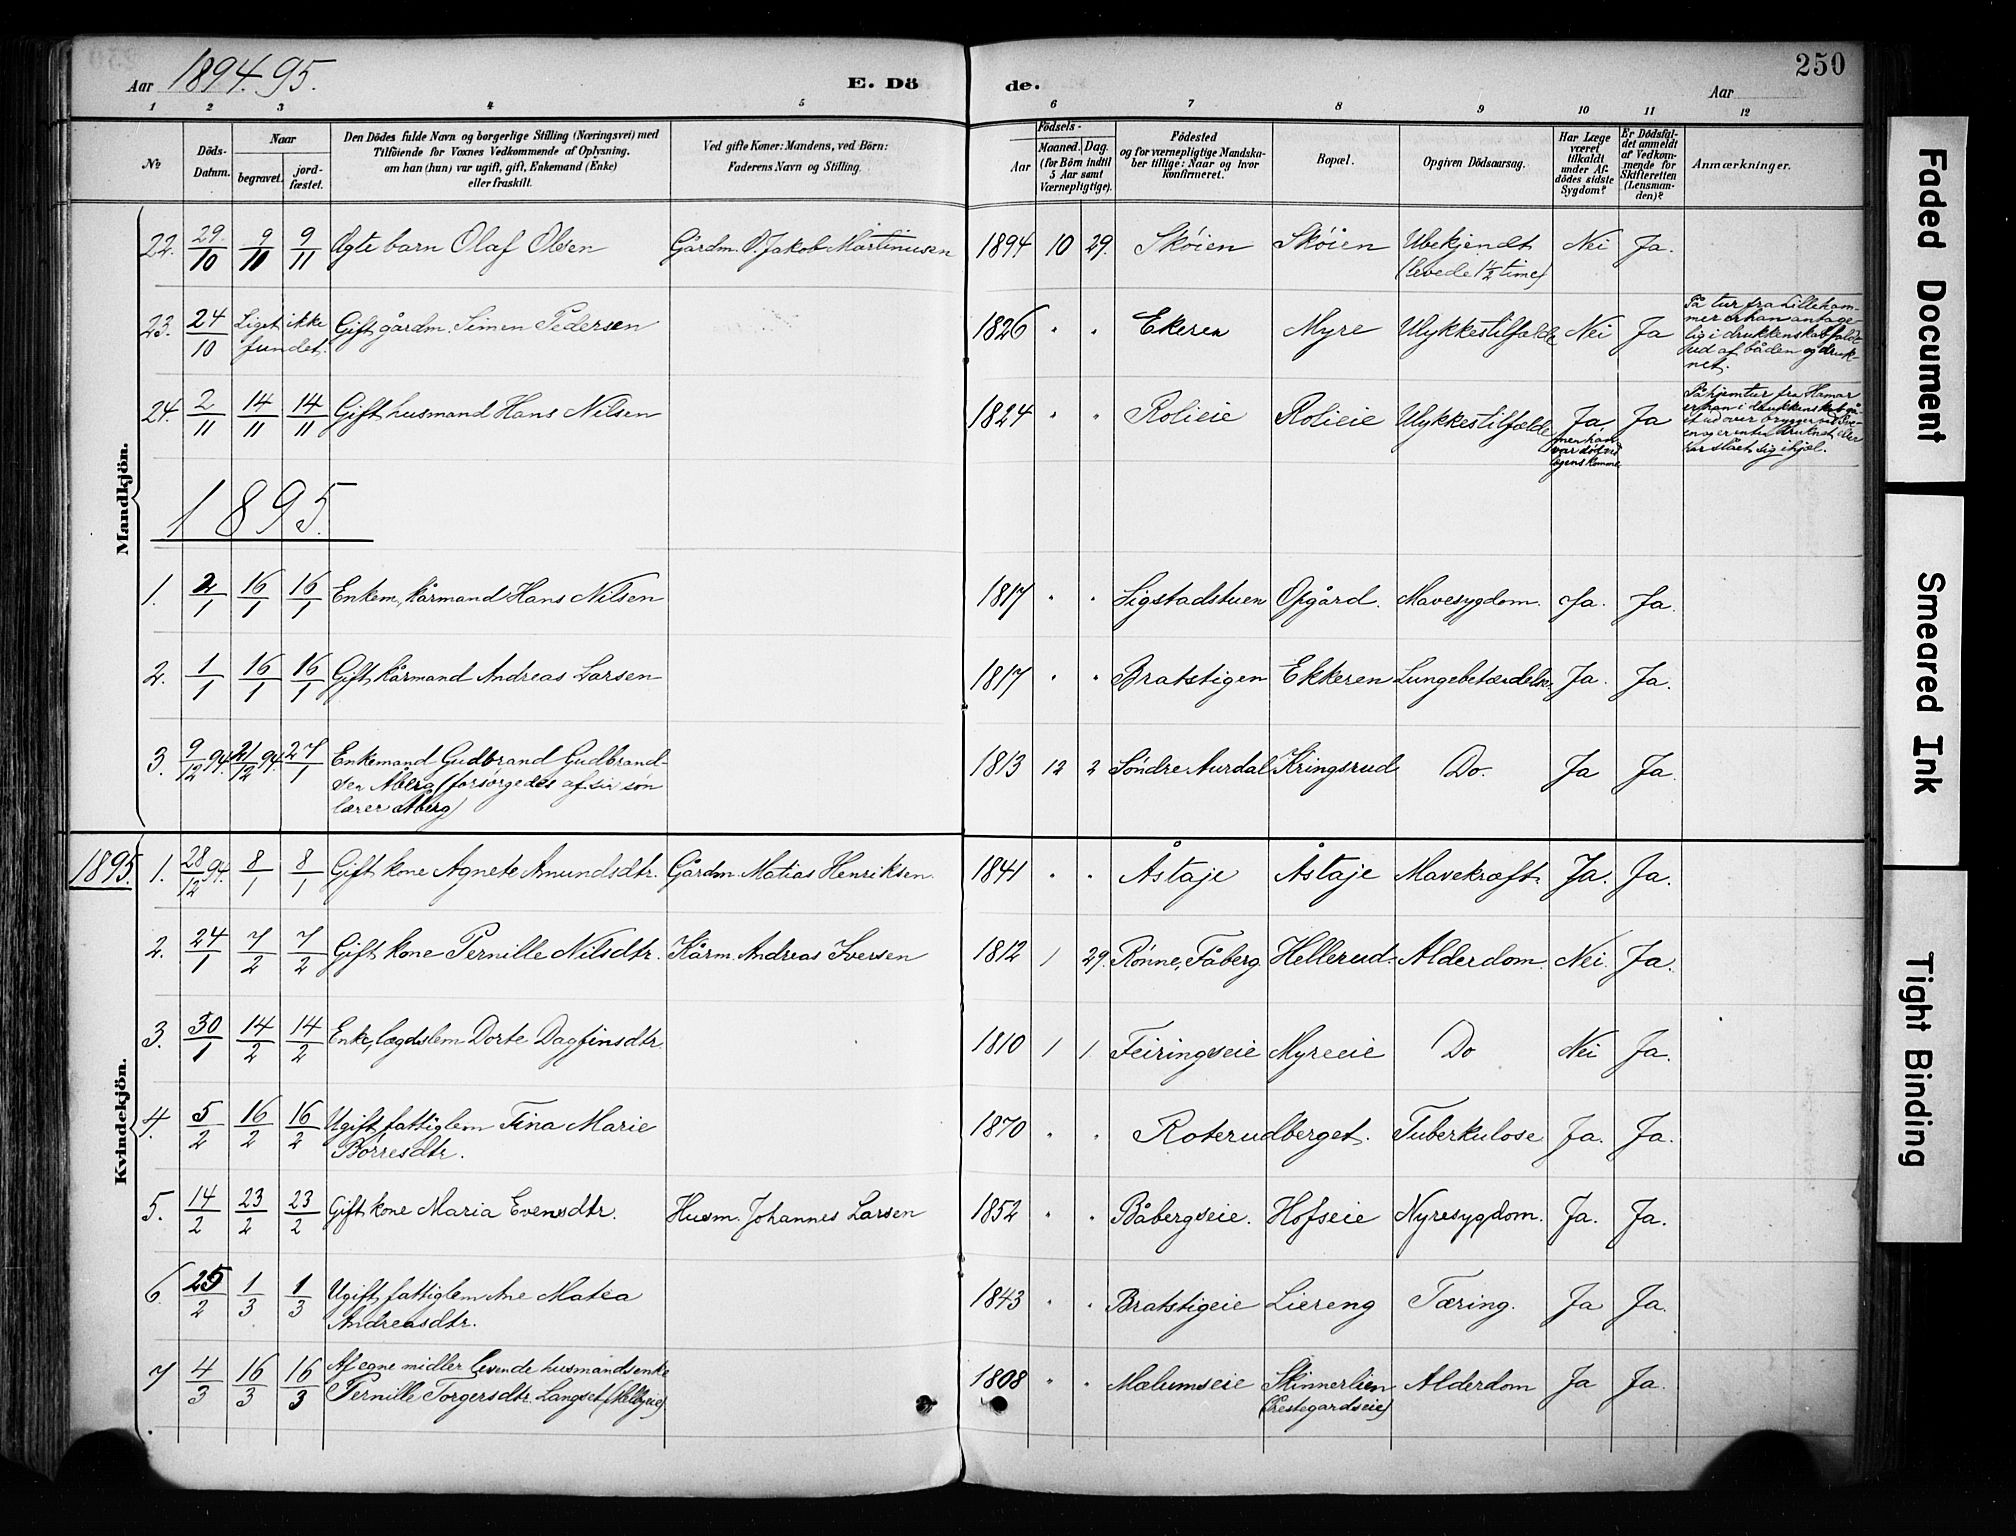 Aar 1894.95. E. Dö de. Aar 250
1 2 3 4 5 6 7 8 9 10 11 12
No Döds-Datum. Naar begravet. jord-fæstet. Den Dödes fulde Navn og borgerlige Stilling (Næringsvei) med Tilföiende for Voxnes Vedkommende af Oplysning, om han (hun) var ugift, gift, Enkemand (Enke) eller fraskilt. Ved gifte Koner: Mandens, ved Börn: Faderens Navn og Stilling. Födsels- Aar Maaned. Dag. (for Börn indtil 5 Aar samt Værnepligtige). Födested og for værnepligtige Mandskaber tillige: Naar og hvor konfirmeret. Bopæl. Opgiven Dödsaarsag. Har Læge været tilkaldt under Afdödes sidste Sygdom? Er Dödsfaldet anmeldt af Vedkommende for Skifteretten (Lensmanden)? Anmærkninger.
Mandkjön.
22. 29/10 9/11 9/11 Ægte barn Olaf Olsen Gårdm. O. Jakob Martinusen 1894 10 29. Skóien Skóien Ubekjendt Nei Ja.
(levede 1 1/2 time)
23. 24/10 Liget ikke fundet. Gift gårdm. Simen Pedersen 1826 " " Ekeren Myre Ulykkestilfælde Nei Ja På tur fra Lillehammer er han antagelig i drukkenskab faldt ud af båden og druknet.
24. 2/11 14/11 14/11 Gift husmand Hans Nilsen 1824 " " Rolieie Rolieie Ulykkestilfælde Ja Ja
men han var død før lægens komme
På hjemtur fra Hamar er han i drukkenskab
druknet eller har slået sig ihjel.
1895.
1. 2/1 16/1 16/1 Enkem., kårmand Hans Nilsen 1817 " " Sigstadstuen Opgård. Mavesygdom. Ja. Ja.
2. 1/1 16/1 16/1 Gift kårmand Andreas Larsen 1817 " " Bratstigen Ekkeren Lungebetændelse. Ja. Ja.
3. 9/12 94. 21/12 94. 27/1 Enkemand Gudbrand Gudbrand- 1813 12 2 Søndre Aurdal Kringsrud Do. Ja Ja.
sen Åberg (forsørgedes af sin søn
lærer Åberg)
Kvindekjön.
1895. 1. 28/12 94. 8/1 8/1 Gift kone Agnete Amundsdtr. Gårdm. Matias Henriksen. 1841 " " Åstaje Åstaje Mavekræft. Ja. Ja.
2. 24/1 7/2 7/2 Gift kone Pernille Nilsdtr. Kårm. Andreas Iversen 1812 1 29. Rønne, Fåberg Hellerud. Alderdom. Nei. Ja.
3. 30/1 14/2 14/2 Enke, lægdslem Dorte Dagfinsdtr. 1810 1 1. Feiringseie Myreeie Do Nei Ja.
4. 5/2 16/2 16/2 Ugift fattiglem Tina Marie 1870 " " Roterudberget. Tuberkulose Ja. Ja.
Børresdtr.
5. 14/2 23/2 23/2 Gift kone Maria Evensdtr. Husm. Johannes Larsen 1852 " " Båbergseie. Hofseie Nyresygdom. Ja. Ja.
6. 25/2 1/3 1/3 Ugift fattiglem Ane Matea 1843 " " Bratstigeie Liereng Tæring. Ja Ja.
Andreasdtr.
7 4/3 16/3 16/3 Af egne midler levende husmandsenke 1808 " " Mælumseie Skinnerlien Alderdom Ja Ja.
Pernille Torgersdtr. Langset (Prestegardseie)
Faded Document
Smeared Ink
Tight Binding